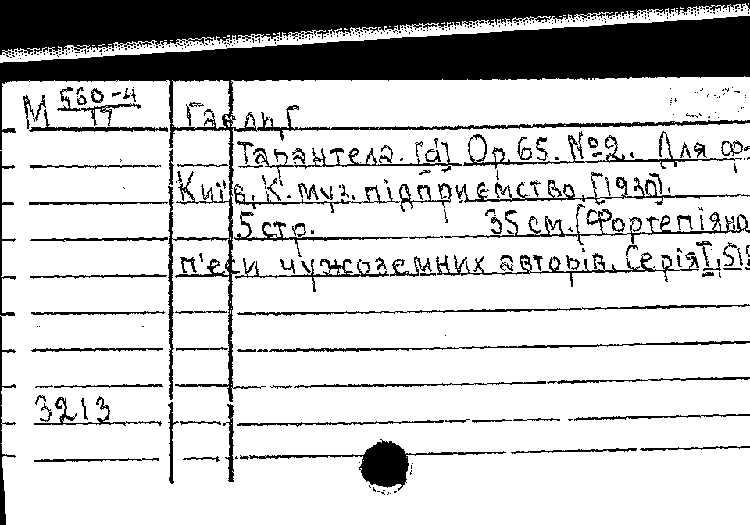 М 560-4/17
Гаєлі, Г
Тарантела. [d] Op. 65. №2. Для фр-
Київ, К. муз. підприємство, [1930].
5 стр. 35 см. (Фортепіяно
п'єси чужоземних авторів. Серія I, 51
3213